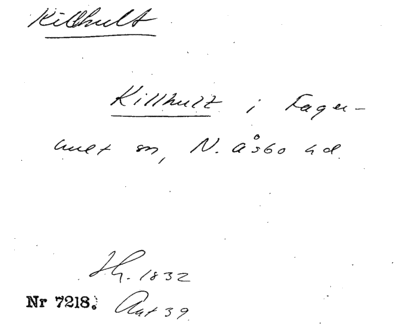 Killhult
Killhult i Fager-
hult sn, N. Åsbo hd.
Jh. 1832
Nr 7218. Ant 39